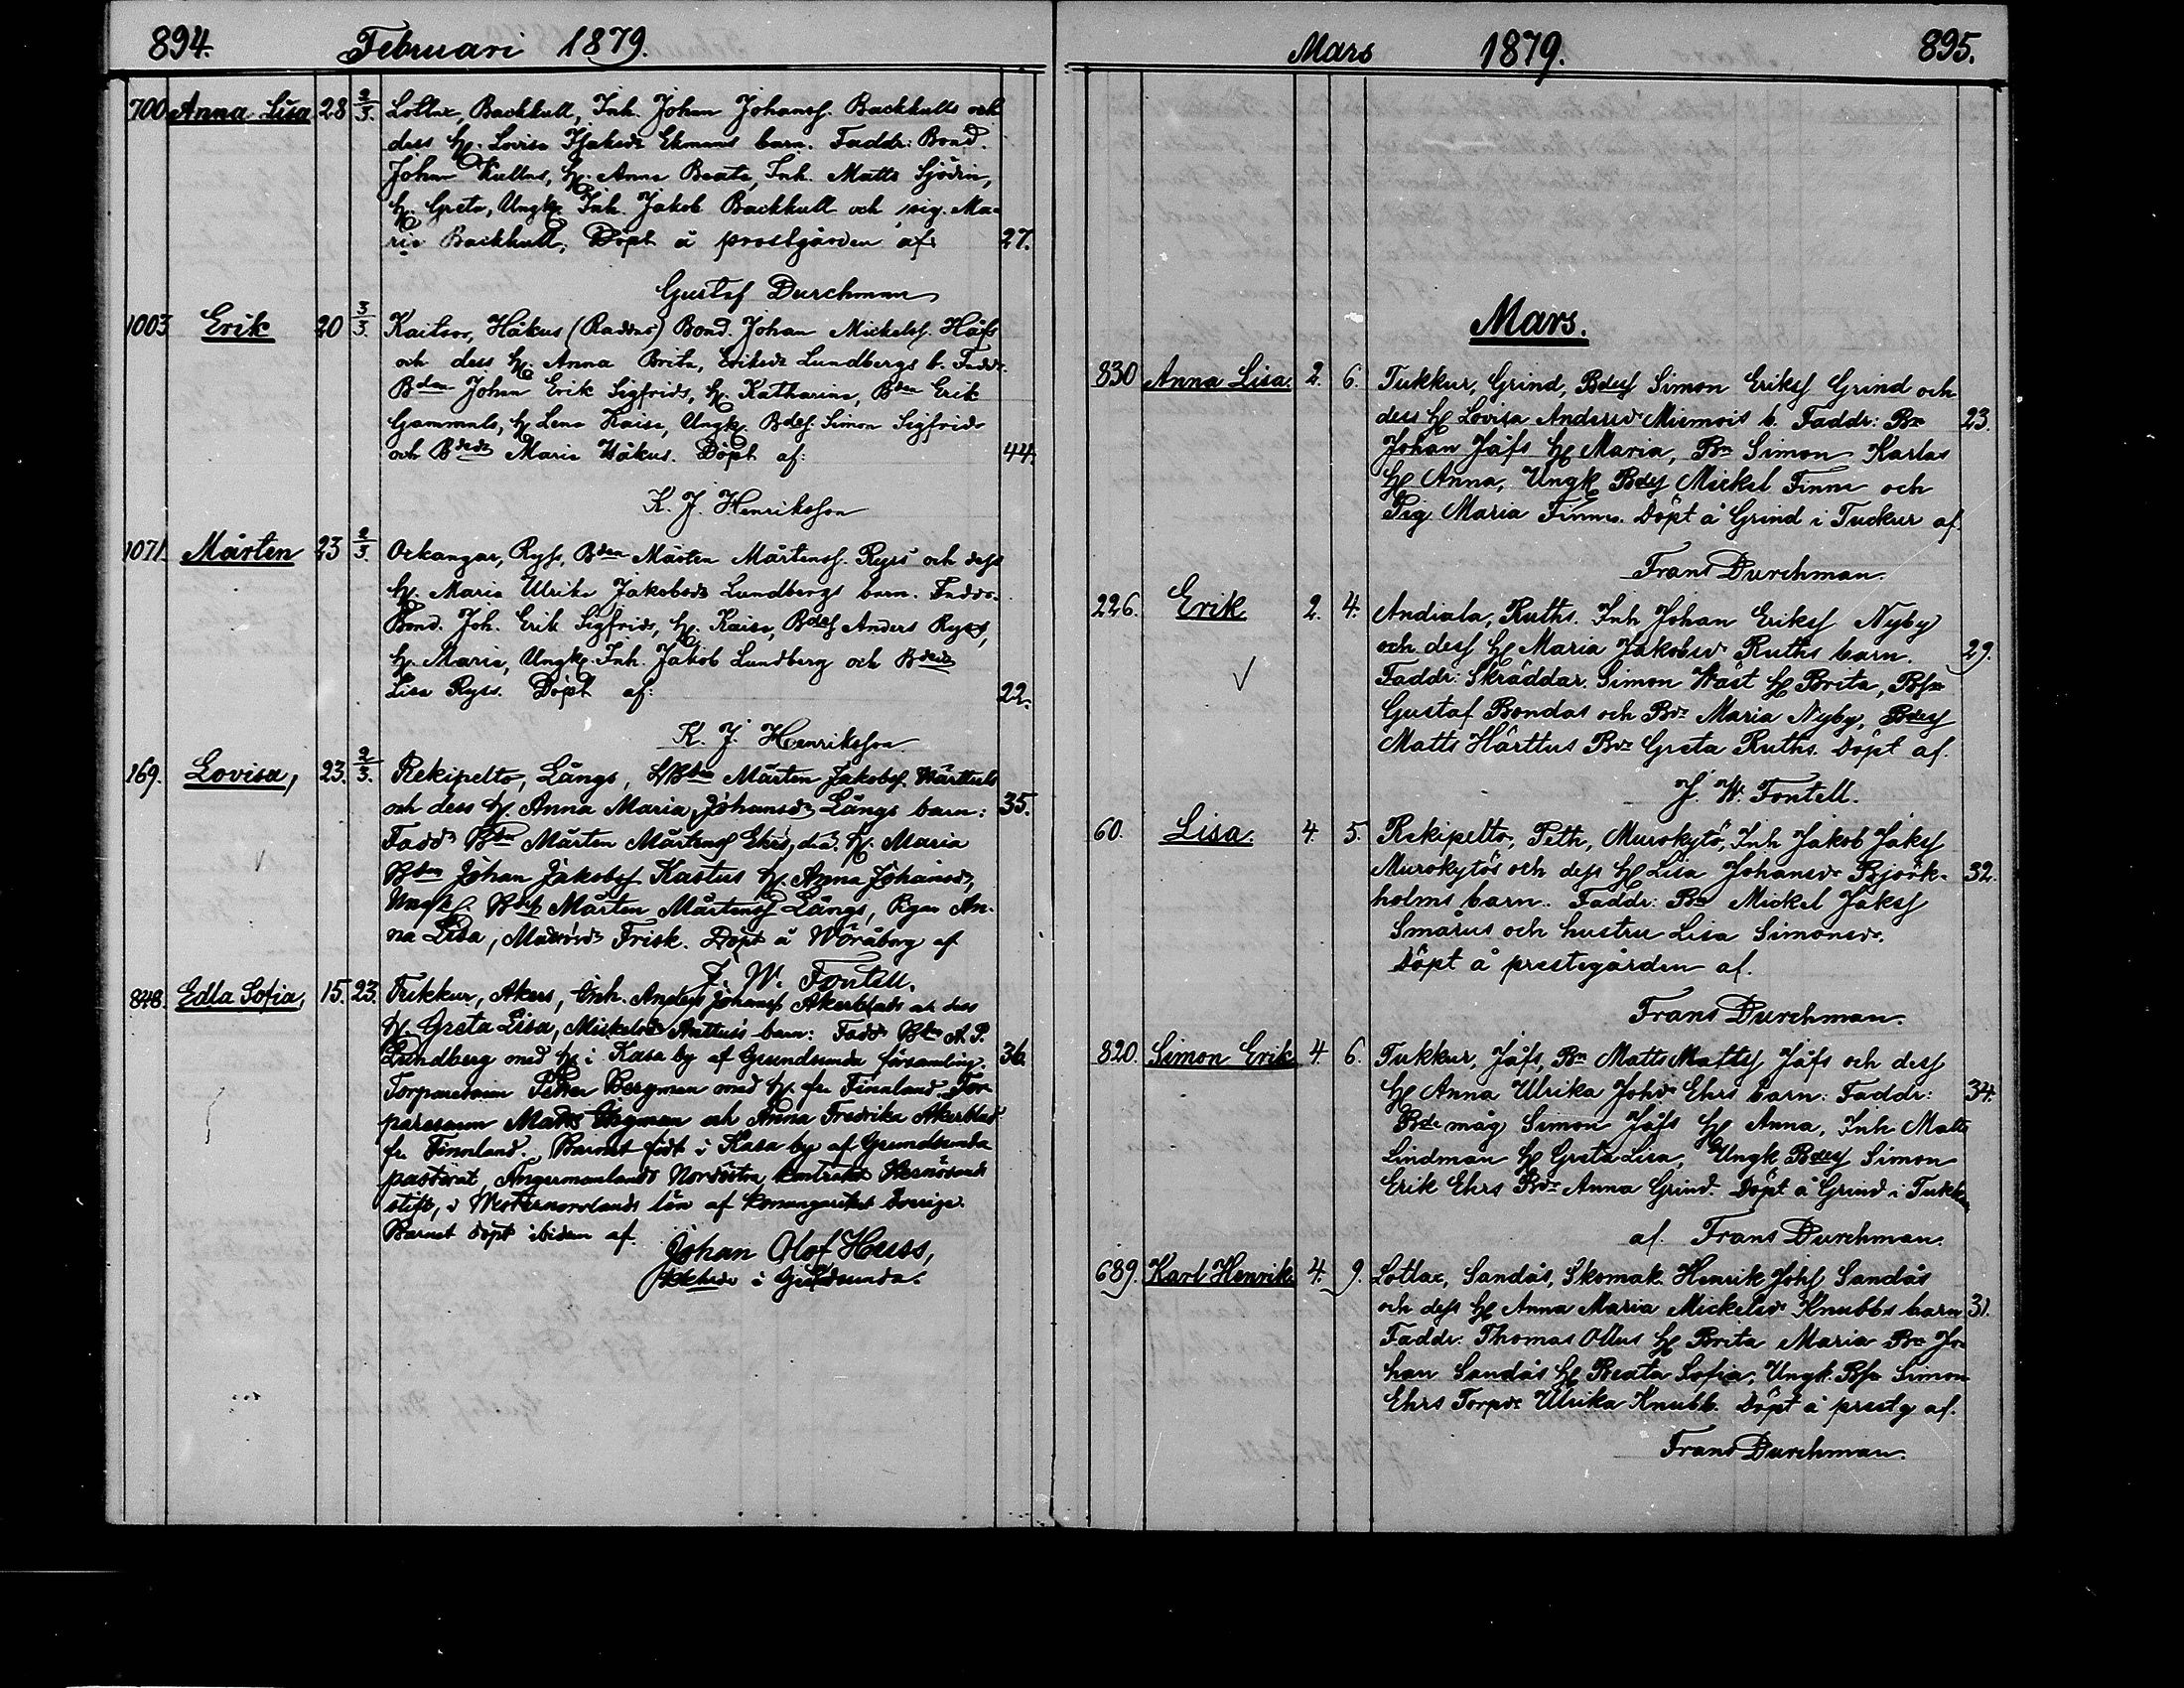 894. Februari 1879.
700 Anna Lisa 28 2/3. Lottax, Backhull, Inh. Johan Johanss. Backhulls och
dess H. Lovisa Isaksdr Ekmans barn. Faddr: Bond.
Johan Kullas, H. Anna Beata, Inh. Matts Sjödin,
H. Greta, Ungk. Inh. Jakob Backhull och pig. Ma-
ria Backhull, Döpt å prostgården af: 27.
Gustaf Durchman
1003 Erik 20 3/3. Kaitsor, Håkus (Radens) Bond. Johan Mickelss. Håfs
och dess H. Anna Brita, Eriksdr Lundbergs b. Faddr.
Bden Johan Erik Sigfrids, H. Katharina, Bden Erik
Gammals, H. Lena Kaisa, Ungk. Bdes. Simon Sigfrids
och Bdedr Maria Håkus. Döpt af: 44.
K. J. Henriksson
1071. Mårten 23 2/3. Oxkangar, Ryss, Bden Mårten Mårtenss. Ryss och dess
H. Maria Ulrika Jakobsdr Lundbergs barn. Faddr.
Bond. Joh. Erik Sigfrids, H. Kaisa, Bdes Anders Ryss,
H. Maria, Ungk. Inh. Jakob Lundberg och Bdedr
Lisa Ryss. Döpt af: 22.
K. J. Henriksson
169. Lovisa, 23. 2/3. Rekipelto, Långs, Bden Mårten Jakobss. Härttuls
och dess H. Anna Maria, Johansdr Långs barn: 35.
Faddr Bden Mårten Mårtenss Ehrs, H. Maria
Bden Johan Jakobss Kastus H. Anna Johansdr,
Ungk. Mårten Mårtenss Långs, Pigan An-
na Lisa, Frisk. Döpt å Wöråborg af
J. W. Fontell.
848. Edla Sofia, 15. 23. Tukkur, Akers, Inh. Anders Johanss Åkerblads och dess
H. Greta Lisa, Mickelsdr barn: Faddr Bden A. P.
Lundberg med H. i Kasa by af Grundsunda församling. 36.
Torparesonen Petter Bergman med H. fr. Finnland. Tor-
paresonen Matts och Anna Fredrika Åkerblad
fr. Finnland. Barnet födt i Kasa by af Grundsunda
pastorat, Ångermanlands Nordöstra kontrakt Hernösands
stift, i Westernorrlands län af konungariket Sverige.
Barnet döpt ibidem af.
Johan Olof Huss,
i Grundsunda.
Mars 1879. 895.
Mars.
830 Anna Lisa. 2. 6. Tukkur, Grind, Bdess Simon Erikss Grind och
dess H Lovisa Andersdr Miemois b. Faddr: Bn 23.
Johan Jåfs H Maria, Bn Simon Karlas
H Anna, Ungk Bdess Mickel Finne och
Pig Maria Finne. Döpt å Grind i Tuckur af
Frans Durchman.
226. Erik 2. 4. Andiala, Ruths. Inh Johan Erikss Nyby
och dess H Maria Jakobsdr Ruths barn. 29.
Faddr: Skräddar. Simon Wäst H Brita, Bn
Gustaf Bondas och Bdr Maria Nyby, Bdess
Matts Härttus Bdr Greta Ruths. Döpt af.
J. W. Fontell.
60. Lisa. 4. 5. Rekipelto, Peth, Murokytö, Inh Jakob Jakss
Murokytös och dess H Lisa Johansdr Björk- 32.
holms barn. Faddr: Bn Mickel Jakss
Smårus och hustru Lisa Simonsdr.
Döpt å prestegården af.
Frans Durchman.
820. Simon Erik 4. 6. Tukkur, Jåfs, Bn Matts Mattss Jåfs och dess
H Anna Ulrika Johdr Ehrs barn: Faddr: 34.
Bde måg Simon Jåfs H Anna, Inh Matts
Lindman H Greta Lisa, Ungk Bdess Simon
Erik Ehrs Bdr Anna Grind. Döpt å Grind i Tukkur
af. Frans Durchman.
689. Karl Henrik 4. 9. Lottax, Sandås, Skomak. Henrik Johss Sandås
och dess H Anna Maria Mickelsdr Knubbs barn 31.
Faddr: Thomas Ollus H Brita Maria Bn Jo-
han Sandås H Beata Sofia, Ungk. Simon
Ehrs Torpdr Ulrika Knubb. Döpt å prestg af.
Frans Durchman.